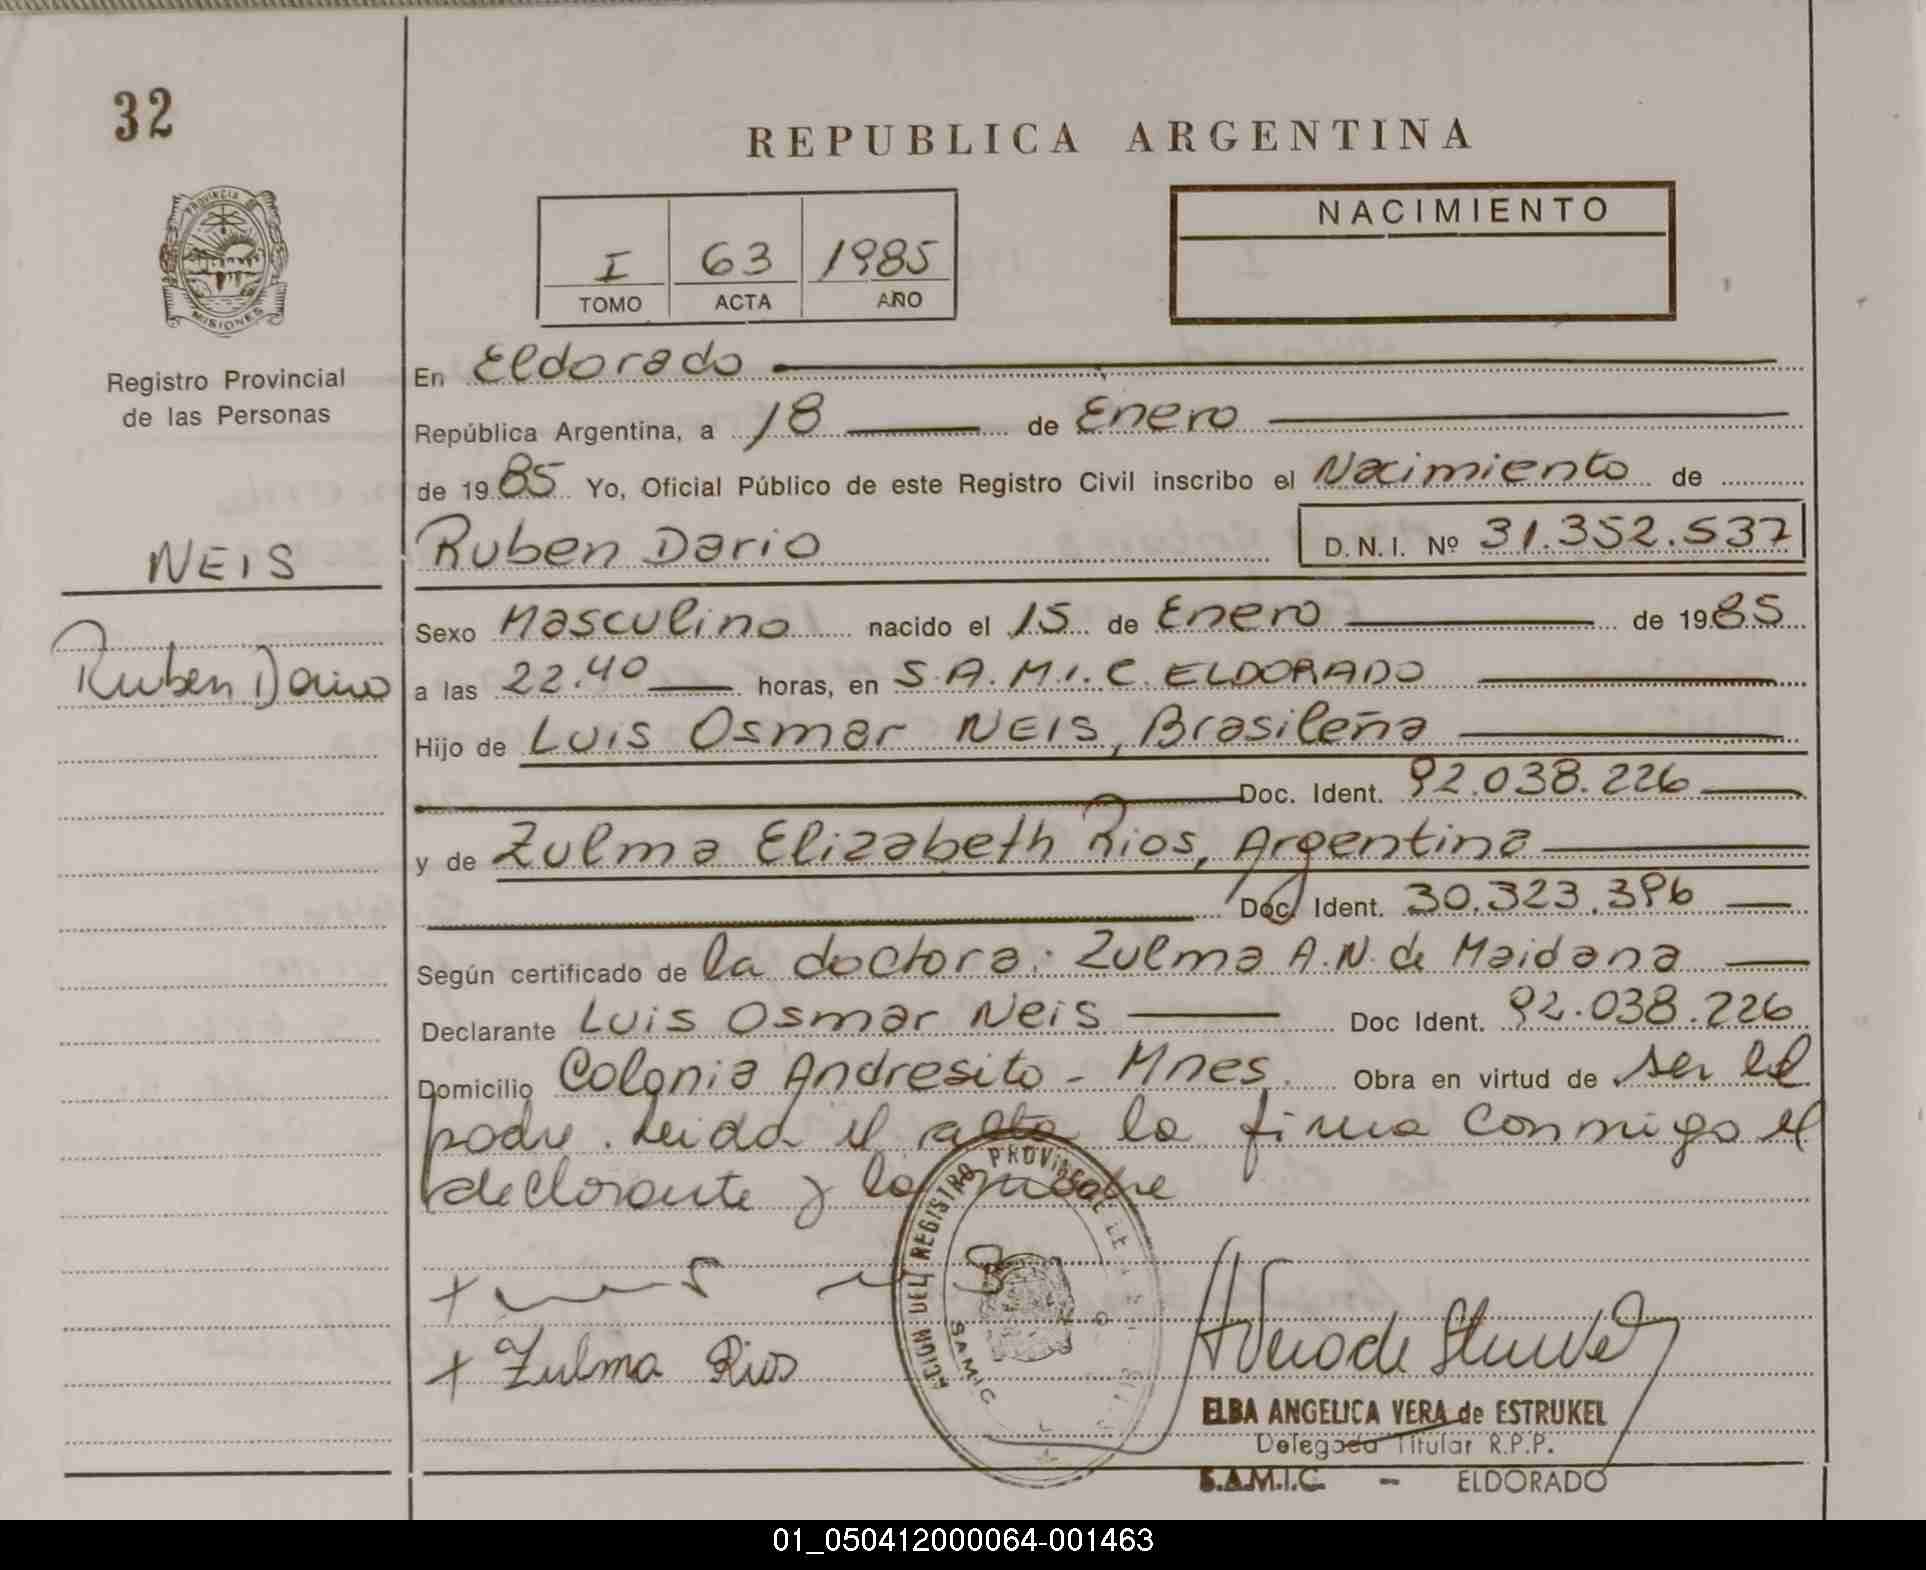 32
REPUBLICA ARGENTINA
PROVINCIA DE
MISIONES
I 63 1985
TOMO ACTA AÑO
NACIMIENTO
Registro Provincial
de las Personas
NEIS
Ruben Dario
En Eldorado
República Argentina, a 18 de Enero
de 1985 Yo, Oficial Público de este Registro Civil inscribo el Nacimiento de
Ruben Dario D.N.I. Nº 31.352.537
Sexo Masculino nacido el 15 de Enero de 1985
a las 22.40 horas, en S.A.M.I.C. ELDORADO
Hijo de Luis Osmar NEIS, Brasileña
Doc. Ident. 92.038.226
y de Zulma Elizabeth Rios, Argentina
Doc. Ident. 30.323.396
Según certificado de la doctora: Zulma A.N. de Maidana
Declarante Luis Osmar Neis Doc Ident. 92.038.226
Domicilio Colonia Andresito - Mnes. Obra en virtud de ser el
padre. Leida el acta la firma conmigo el
declarante y la madre
+
+ Zulma Rios
DEL REGISTRO PROVINCIAL DE
SAMIC
ELBA ANGELICA VERA de ESTRUKEL
Delegada Titular R.P.P.
S.A.M.I.C. - ELDORADO
01_050412000064-001463